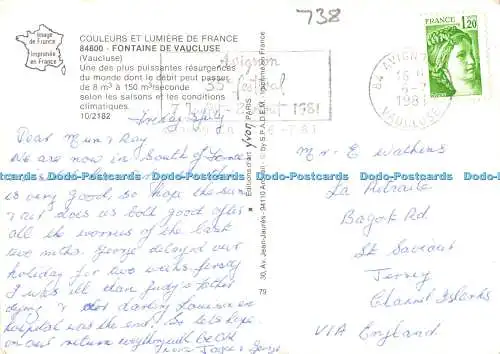 738
Image de France
Imprimée en France
COULEURS ET LUMIÈRE DE FRANCE
84800 - FONTAINE DE VAUCLUSE
(Vaucluse)
Une des plus puissantes résurgences
du monde dont le débit peut passer
de 8 m³ à 150 m³/seconde
selon les saisons et les conditions
climatiques.
10/2182
Avignon
35 festival
1981
FRANCE
1,20
84 AVIGNON
1981
VAUCLUSE
Dear Mum & Ray
We are now in South of France
is very good, so hope the sun
& rest does us both good after
all the worries of the last
two mths. George delayed our
holiday for two weeks firstly
I was ill than Judy's father
dying & our darling Louise in
hospital was the end. So lets hope
on our return
love George
Editions d'art yvon PARIS
30, Av. Jean-Jaurès - 94110 Arcueil
© by S.P.A.D.E.M. Imprimé en France
79
Mr E Watkins
La Retraite
Bagot Rd
St Saviour
Jersey
Channel Islands
VIA England
Dodo-Postcards Dodo-Postcards Dodo-Postcards Dodo-Postcards Dodo-Postcards
Dodo-Postcards Dodo-Postcards Dodo-Postcards Dodo-Postcards Dodo-Postcards